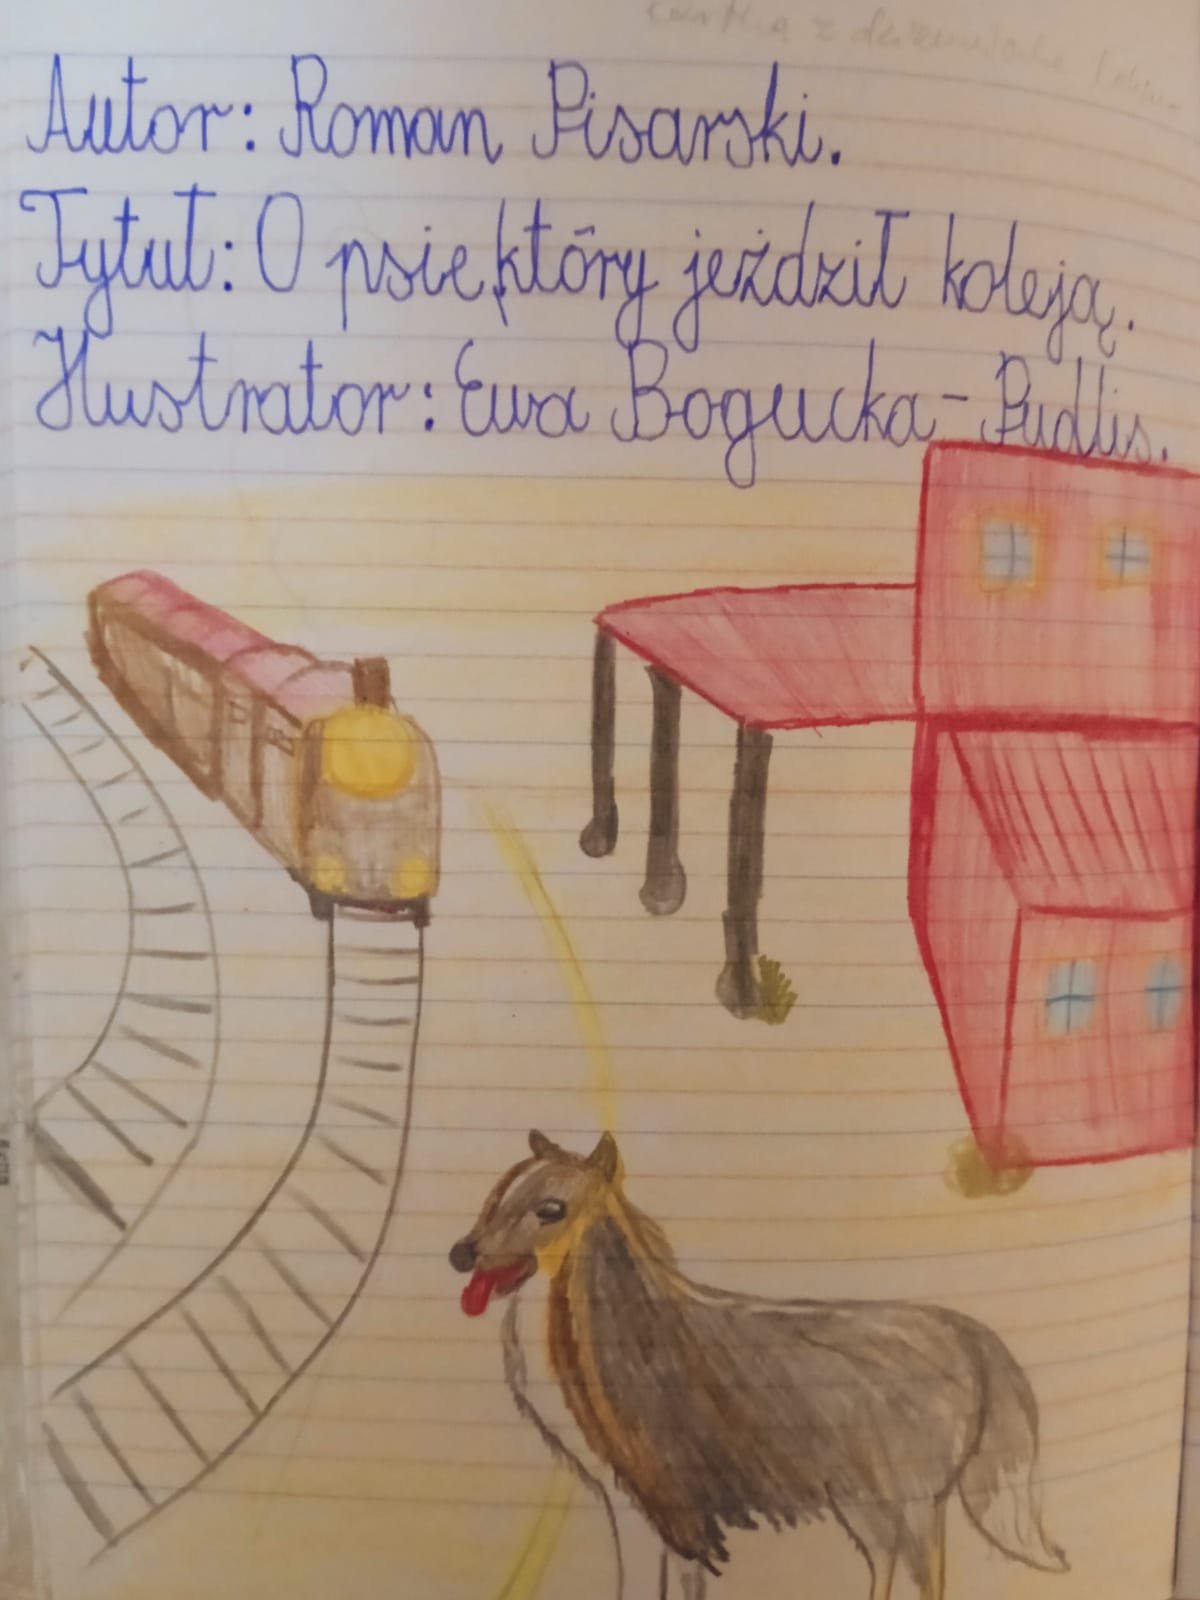 Autor: Roman Pisarski.
Tytuł: O psie,który jeździł koleją.
Ilustrator: Ewa Bogucka-Pudlis.